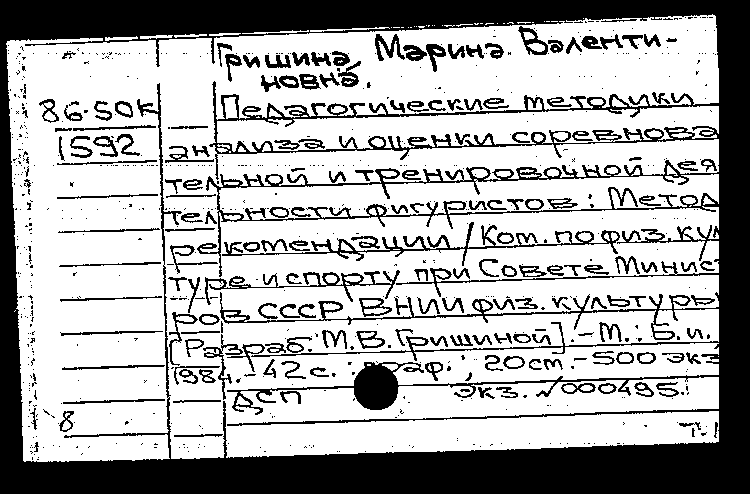 Гришина, Марина Валенти-
новна.
86-50к Педагогические методики
1592 анализа и оценки соревнова
тельной и тренировочной дея
тельности фигуристов : Метод
рекомендации / Ком. по физ. кул
туре и спорту при Совете Минист
ров СССР, ВНИИ физ. культуры
[Разраб. М.В. Гришиной]. – М. : Б.и.,
1984. – 42 с. : граф. ; 20 см. – 500 экз
ДСП экз. №000495.
8
Т.